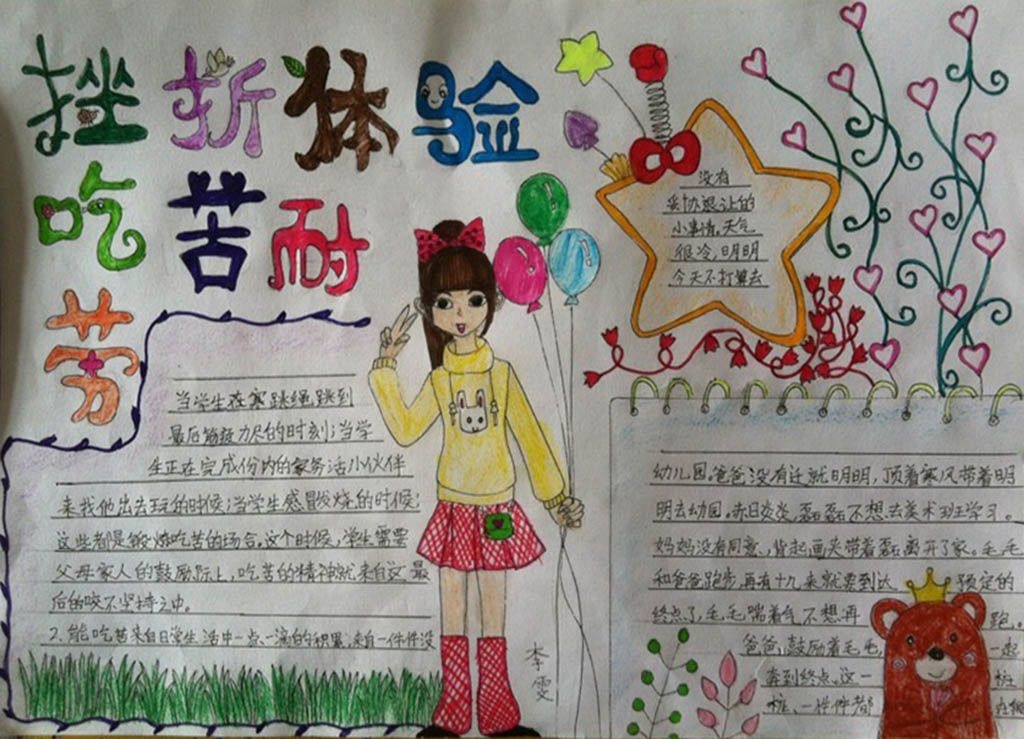 挫折体验
吃苦耐
劳
当学生在寒跳绳跳到
最后筋疲力尽的时刻；当学
生正在完成份内的家务活小伙伴
来找他出去玩的时候；当学生感冒发烧的时候；
这些都是锻炼吃苦的场合。这个时候，学生需要
父母家人的鼓励际上，吃苦的精神就来自这最
后的咬不坚持之中。
2、能吃苦来自日学生活中一点一滴的积累，来自一件件没
没有
妥协退让的
小事情。天气
很冷，明明
今天不打算去
幼儿园。爸爸没有迁就明明，顶着寒风带着明
明去幼园。赤日炎炎，磊磊不想去美术班学习。
妈妈没有同意，背起画夹带着磊离开了家。毛毛
和爸爸跑步，再有十九来就要到达预定的
终点了，毛毛喘着气不想再跑。
爸爸鼓励着毛毛，一起
奔到终点。这一桩
桩、一件件都在
李雯